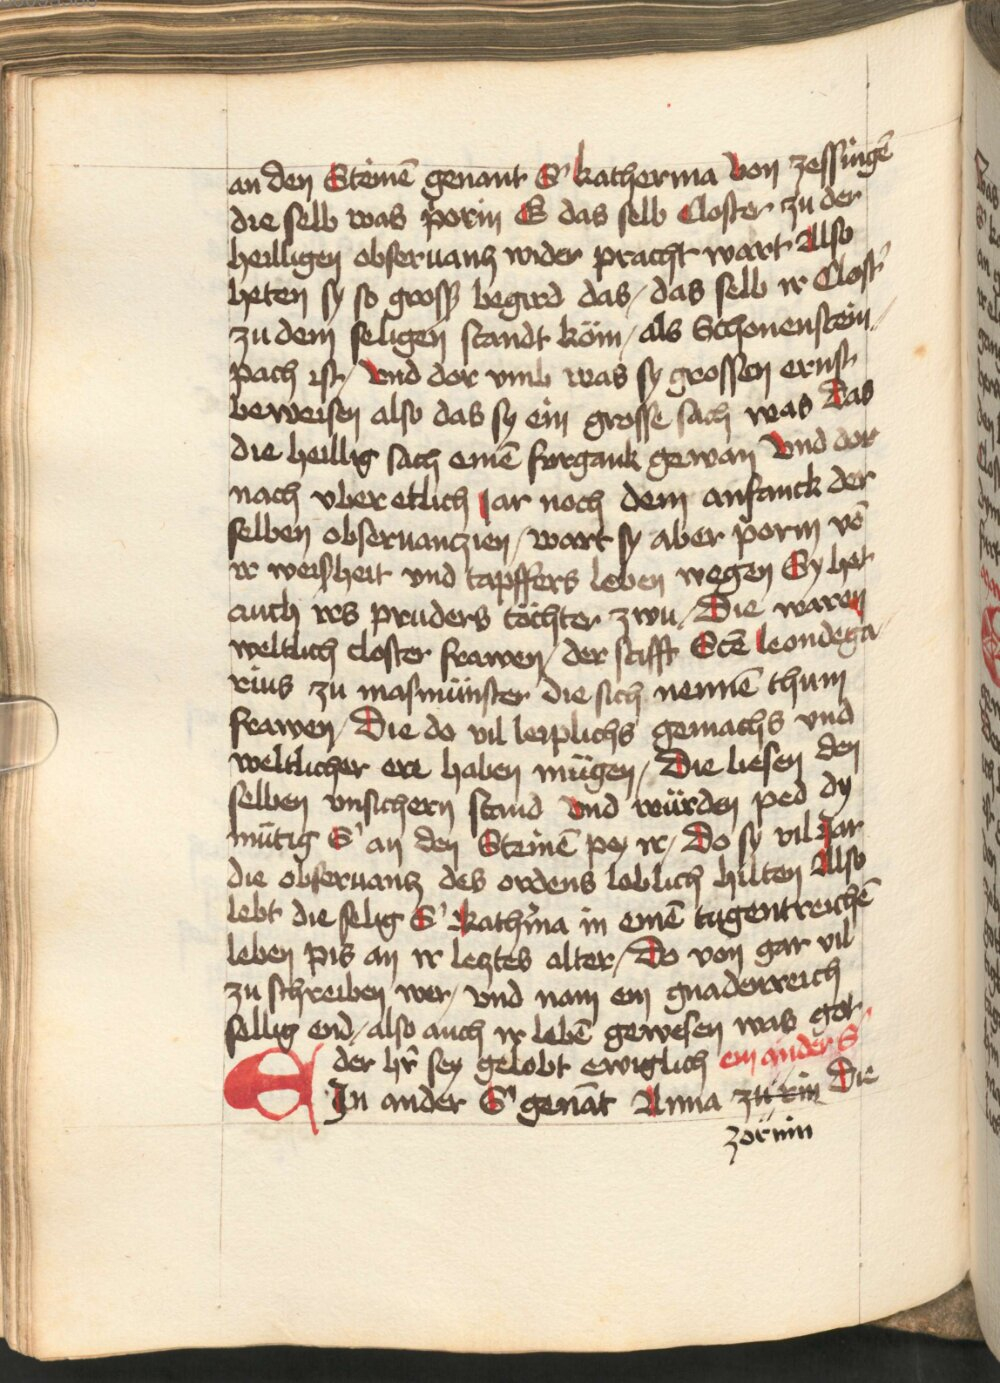 an den Steinē genant S' katherina von zessingē
die selb was porin E das selb Closter zu der
heilligen obseruantz wider pracht wart Also
heten sy so gross begird das / das selb ir Clost'
zu dem seligen standt köm / als Schonenstein
pach ist / Vnd dor vmb was sy grossen ernst
beweisen also das sy ein grosse sach was Das
die heillig sach einē furgank gewan Vnd dor
nach vber etlich Jar noch dem anfanck der
selben obseruanczien / wart sy aber porin vō
ir weisheit vnd tapffers leben wegen Sy het
auch irs pruders töchter zwu / Die waren
weltlich closter frawen / der stifft Sctē leondega
rius zu masmünster die sich nennē thum
frawen / Die do vil leiplichs gemachs vnd
weltlicher ere haben mügen / Die liesen den
selben vnsichern stand vnd würden ped dy
mütig S' an den Steinē pey ir / Do sy vil Jar
die obseruantz des ordens loblich hilten Also
lebt die selig S' Kath'ina in einē tugentreichē
leben pis an ir leztes alter / Do von gar vil
zu schreiben wer / vnd nam ein gnadenreich
sellig end / also auch ir lebē gewesen was got
der hr̄ sey gelobt ewiglich ein ander S'
EIn ander S' genāt Anna Die
zörnin